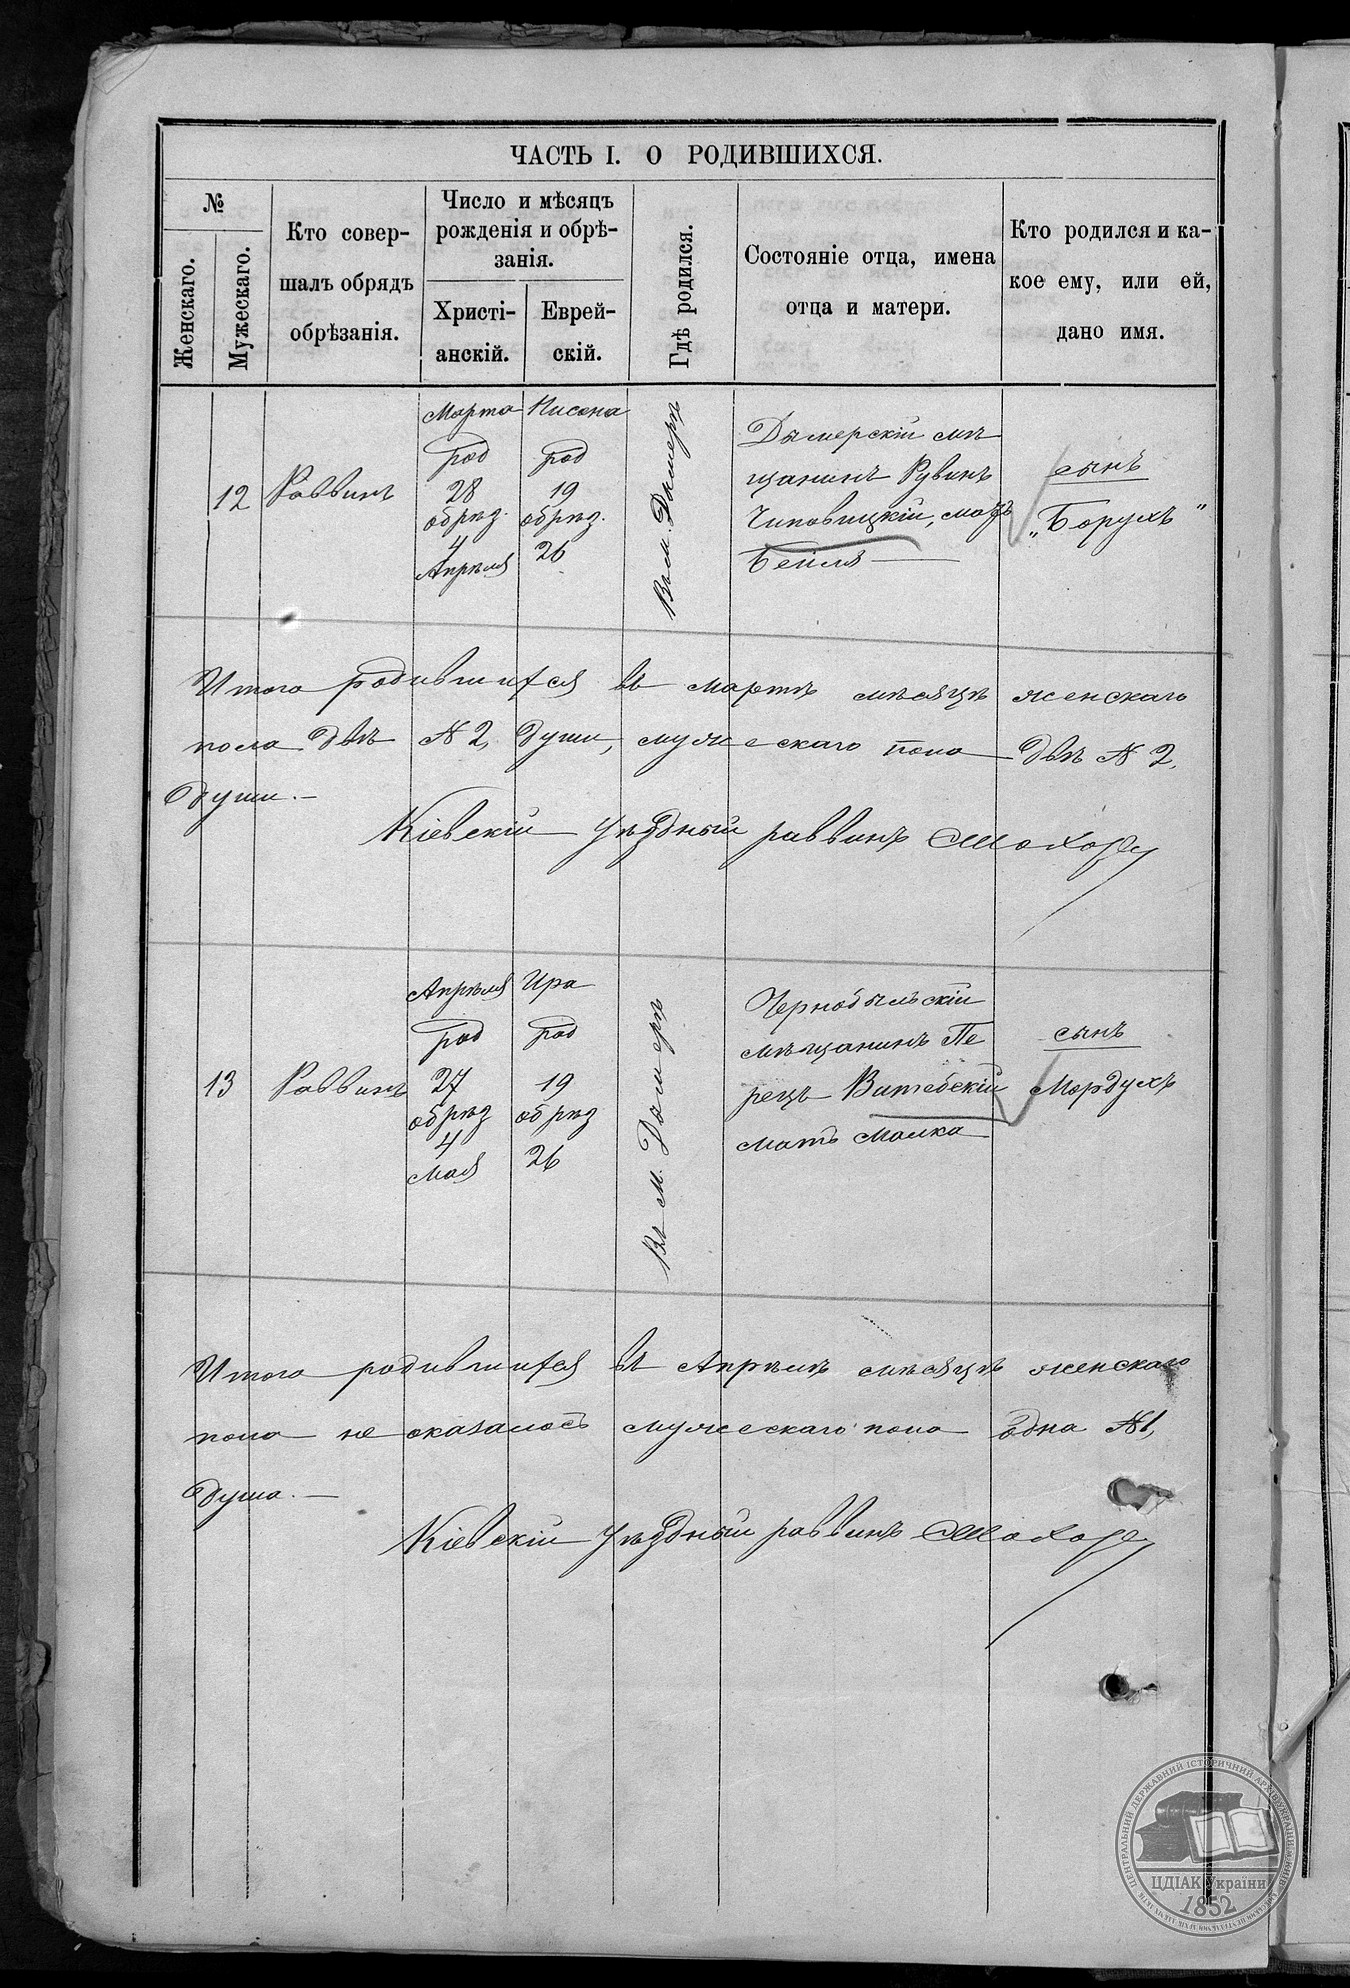 ЧАСТЬ I. О РОДИВШИХСЯ.
№
Женскаго.
Мужескаго.
Кто совер-
шалъ обрядъ
обрѣзанія.
Число и мѣсяцъ
рожденія и обрѣ-
занія.
Христі-
анскій.
Еврей-
скій.
Гдѣ родился.
Состояніе отца, имена
отца и матери.
Кто родился и ка-
кое ему, или ей,
дано имя.
12
Раввинъ
Марта
род
28
обрѣз.
4
Апрѣля
Нисона
род
19
обрѣз.
26
Въ м. Дымерѣ
Дымерскій мѣ
щанинъ Рувинъ
мать
Бейля
сынъ
„Борухъ"
Итого родившихся въ Мартѣ мѣсяцѣ женскаго
пола двѣ № 2, души, мужескаго пола двѣ № 2,
души.—
Кіевскій Уѣздный раввинъ
13
Раввинъ
Апрѣля
род
27
обрѣз
4
Мая
Ира
род
19
обрѣз
26
Въ М. Дымерѣ
Чернобыльскій
мѣщанинъ Пе
рецъ Витебскій
мать Малка
сынъ
Мордухъ
Итого родившихся въ Апрѣлѣ мѣсяцѣ женскаго
пола не оказалось мужескаго пола одна №1,
душа.—
Кіевскій Уѣздный раввинъ
ЦЕНТРАЛЬНИЙ ДЕРЖАВНИЙ ІСТОРИЧНИЙ АРХІВ УКРАЇНИ, М. КИЇВ
ЦДІАК України
1852